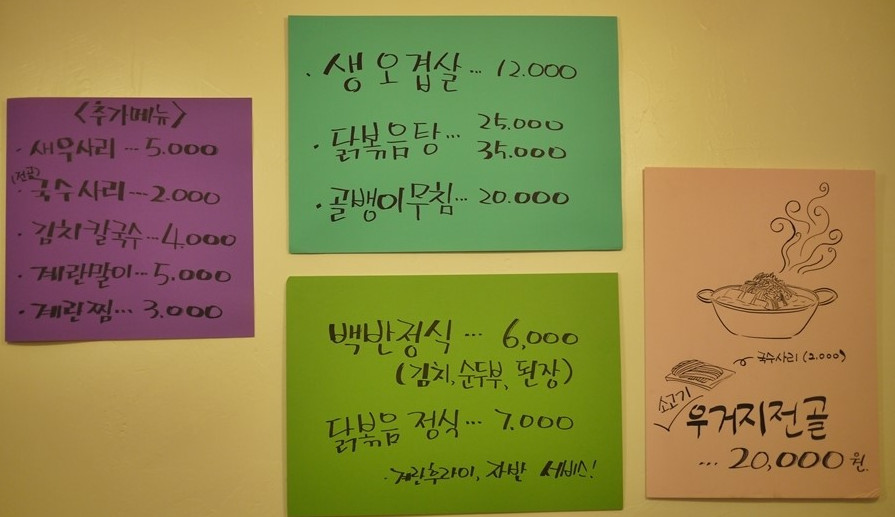 <추가메뉴>
· 새우사리 ... 5.000
(전골)
· 국수사리 --- 2.000
· 김치칼국수 ... 4.000
· 계란말이 ... 5.000
· 계란찜 ... 3.000
· 생오겹살 ... 12.000
· 닭볶음탕 ... 25.000
35.000
· 골뱅이무침 ... 20.000
백반정식 ... 6,000
(김치, 순두부, 된장)
닭볶음 정식 ... 7.000
· 계란후라이, 자반 서비스!
국수사리 (2.000)
소고기
우거지전골
... 20,000원.